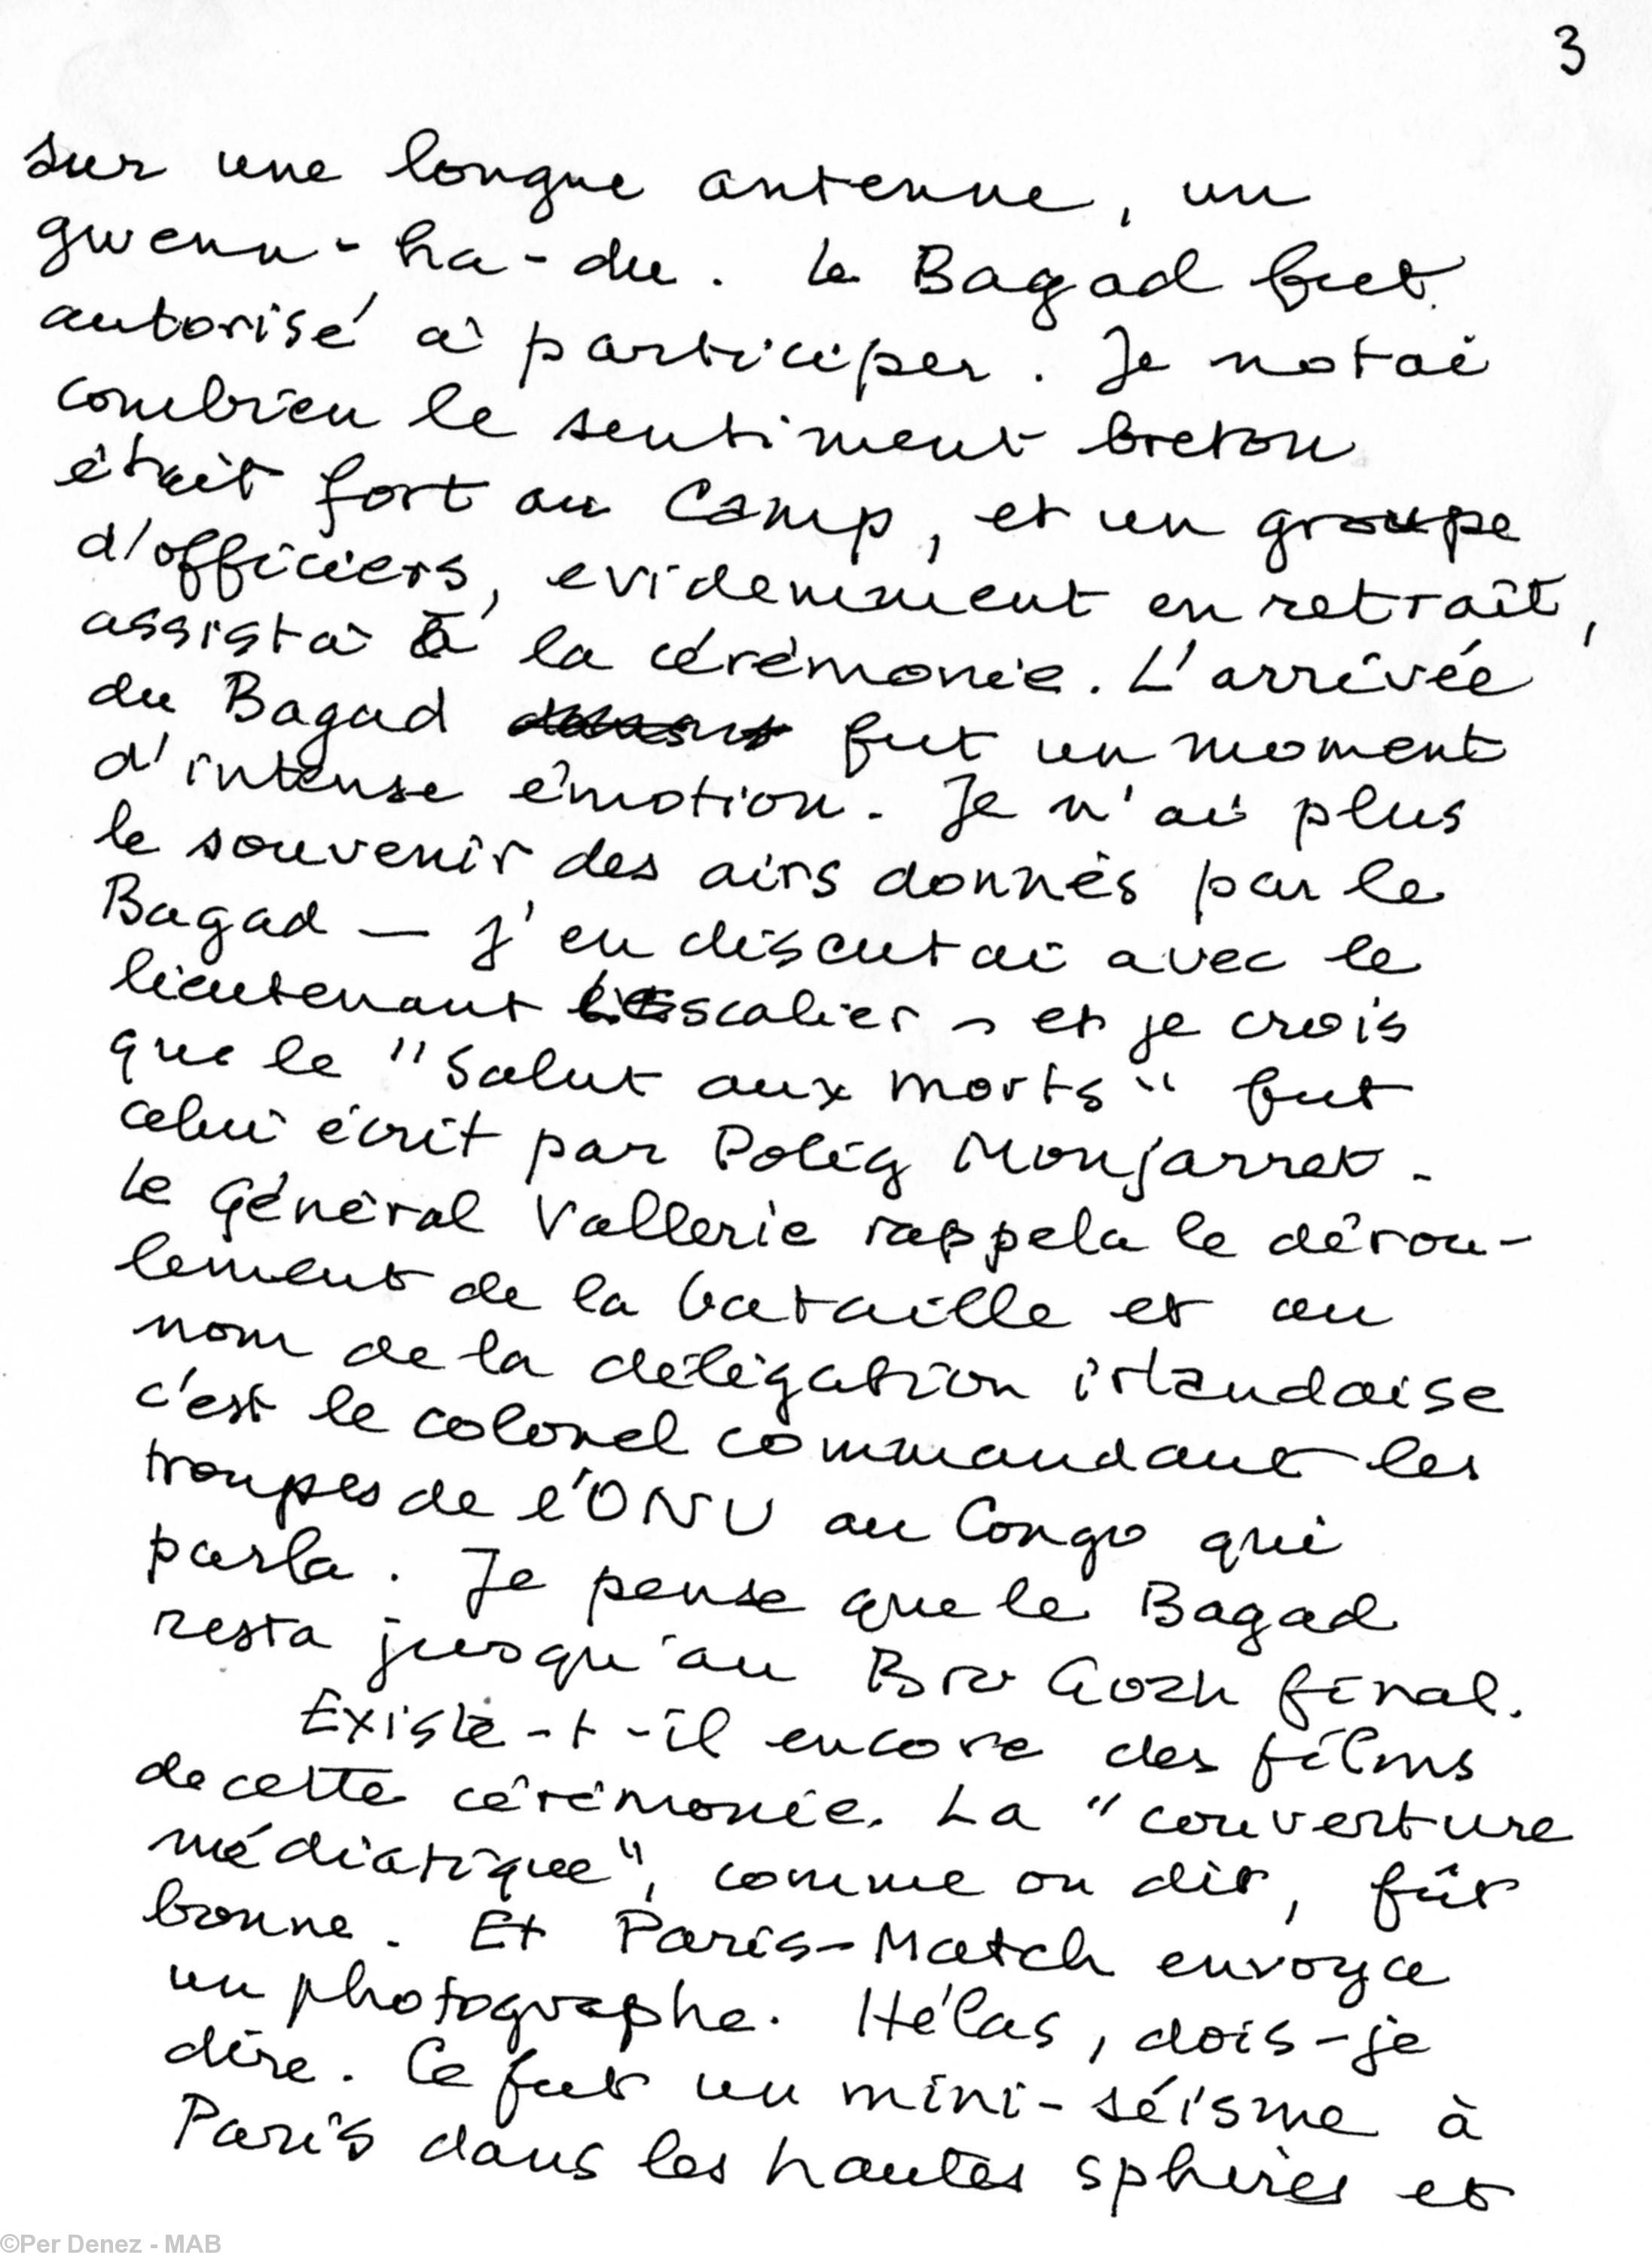 3
sur une longue antenne, un
gwenn-ha-du. Le Bagad fut
autorisé à participer. Je notai
combien le sentiment breton
était fort au Camp, et un groupe
d'officiers, evidemment en retraît,
assista à la cérémonie. L'arrivée
du Bagad fut un moment
d'intense émotion. Je n'ai plus
le souvenir des airs donnés par le
Bagad — J'en discutai avec le
lieutenant L'Escalier - et je crois
que le "Salut aux morts" fut
celui écrit par Polig Monjarret.
Le Général Vallerie rappela le dérou-
lement de la bataille et au
nom de la délégation irlandaise
c'est le colonel commandant les
troupes de l'ONU au Congo qui
parla. Je pense que le Bagad
resta jusqu'au Bro Gozh final.
Existe-t-il encore des films
de cette cérémonie. La "couverture
médiatique", comme on dit, fût
bonne. Et Paris-Match envoya
un photographe. Hélas, dois-je
dire. Ce fut un mini-séisme à
Paris dans les hautes sphères et
©Per Denez - MAB